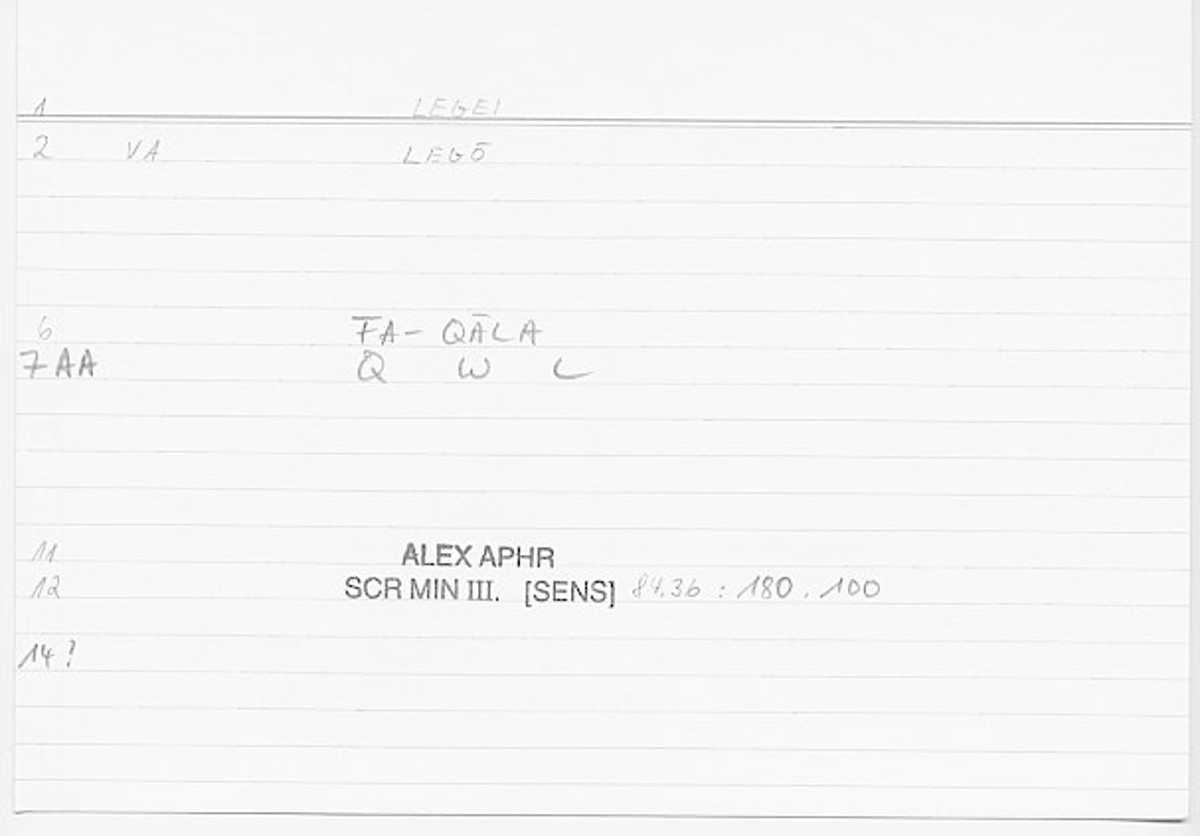 1 LEGEI
2 VA LEGŌ
6 FA- QĀLA
7 AA Q W L
11 ALEX APHR
12 SCR MIN III. [SENS] 84.36 : 180.100
14?